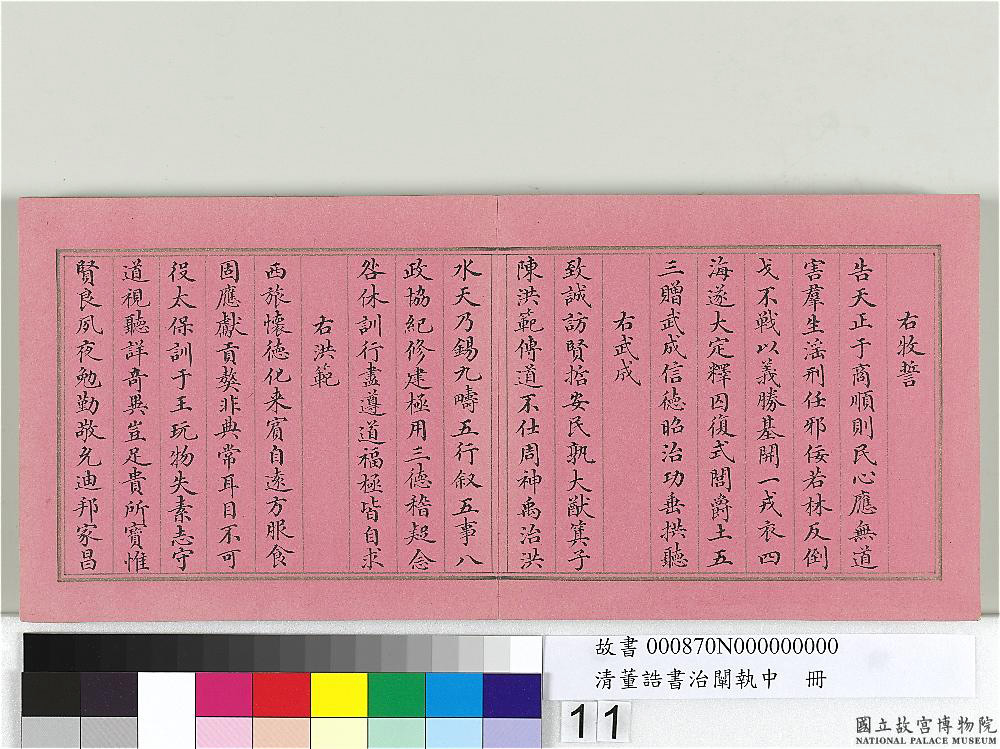 右牧誓
告天正于商順則民心應無道
害羣生淫刑任邪佞若林反倒
戈不戰以義勝基開一戎衣四
海遂大定釋囚復式閭爵土五
三贈武成信德昭治功垂拱聽
右武成
致誠訪賢哲安民孰大猷箕子
陳洪範傳道不仕周神禹治洪
水天乃錫九疇五行敘五事八
政協紀修建極用三德稽疑念
咎休訓行盡遵道福極皆自求
右洪範
西旅懷德化来賓自遠方服食
固應獻貢獒非典常耳目不可
役太保訓于王玩物失素志守
道視聽詳奇異豈足貴所寶惟
賢良夙夜勉勤敬允迪邦家昌
故書 000870N000000000
清董誥書治闡執中 冊
11
國立故宮博物院
NATIONAL PALACE MUSEUM